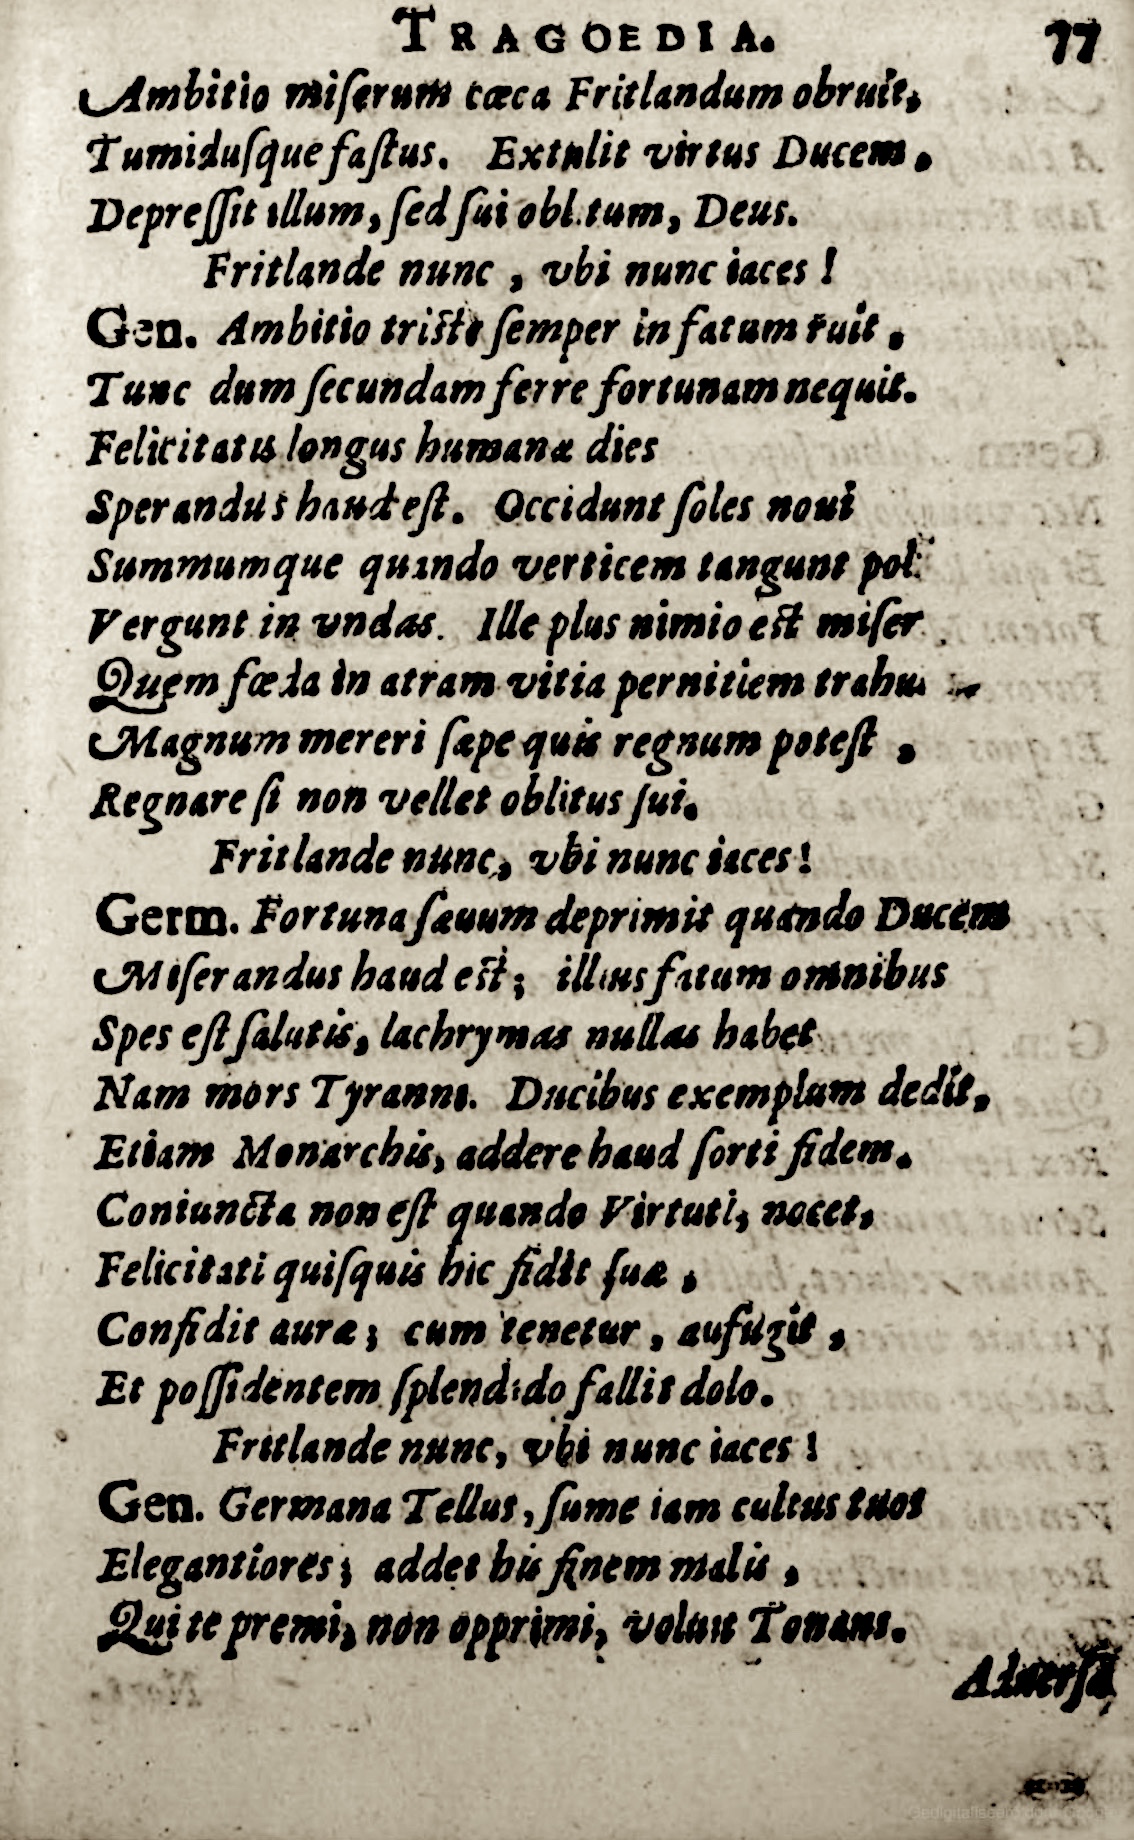 TRAGOEDIA. 77
Ambitio miſerum cæca Fritlandum obruit,
Tumiduſque faſtus. Extulit virtus Ducem,
Depreſſit illum, ſed ſui oblitum, Deus.
Fritlande nunc, vbi nunc iaces!
Gen. Ambitio triste ſemper in fatum ruit,
Tunc dum ſecundam ferre fortunam nequit.
Felicitatis longus humanæ dies
Sperandus haud eſt. Occidunt ſoles noui
Summumque quando verticem tangunt poli
Vergunt in vndas. Ille plus nimio est miſer
Quem fœda in atram vitia pernitiem trahunt
Magnum mereri ſæpe quis regnum poteſt,
Regnare ſi non vellet oblitus ſui.
Fritlande nunc, vbi nunc iaces!
Germ. Fortuna ſæuum deprimit quando Ducem
Miſerandus haud est; illius fatum omnibus
Spes eſt ſalutis, lachrymas nullas habet
Nam mors Tyranni. Ducibus exemplum dedit,
Etiam Monarchis, addere haud ſorti fidem.
Coniuncta non eſt quando Virtuti, nocet,
Felicitati quiſquis hic fidit ſuæ,
Confidit auræ; cum tenetur, aufugit,
Et poſſidentem ſplendido fallit dolo.
Fritlande nunc, vbi nunc iaces!
Gen. Germana Tellus, ſume iam cultus tuos
Elegantiores; addet his finem malis,
Qui te premi, non opprimi, voluit Tonans.
Aduerſa